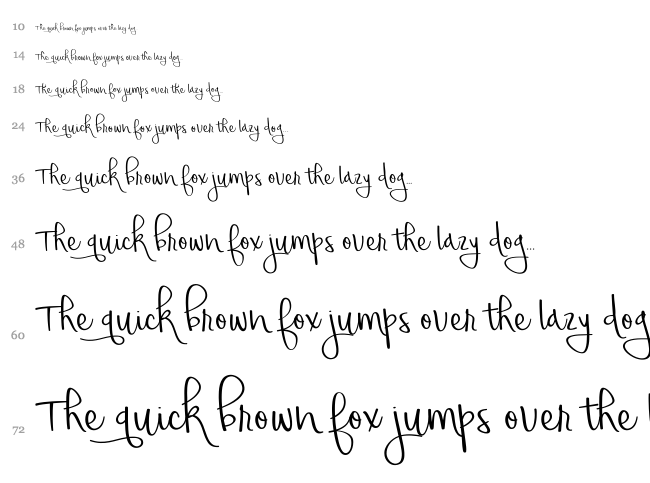 10 The quick brown fox jumps over the lazy dog...
14 The quick brown fox jumps over the lazy dog...
18 The quick brown fox jumps over the lazy dog...
24 The quick brown fox jumps over the lazy dog...
36 The quick brown fox jumps over the lazy dog...
48 The quick brown fox jumps over the lazy dog...
60 The quick brown fox jumps over the lazy dog
72 The quick brown fox jumps over the